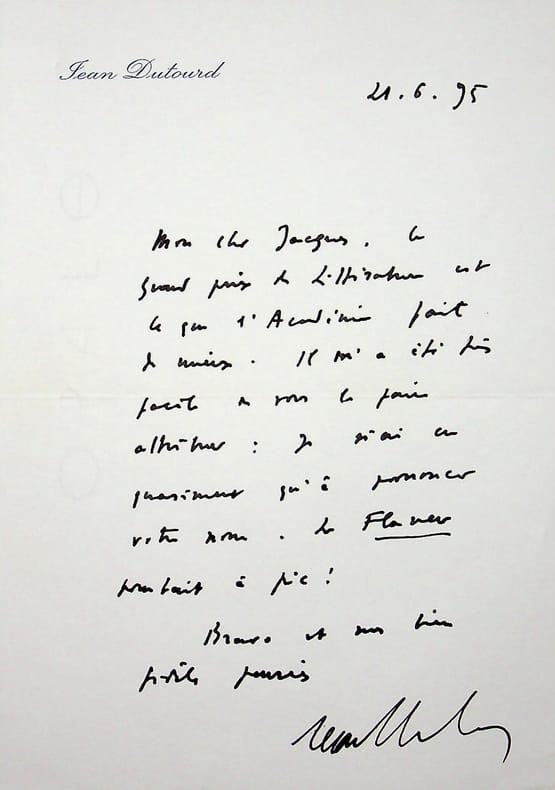 Jean Dutourd
21.6.95
Mon cher Jacques, le
grand prix de Littérature est
ce que l'Académie fait
de mieux. Il m'a été très
facile de vous le faire
attribuer : je n'ai eu
quasiment qu'à prononcer
votre nom. Le Flaneur
tombait à pic !
Bravo et mes bien
fidèles pensées